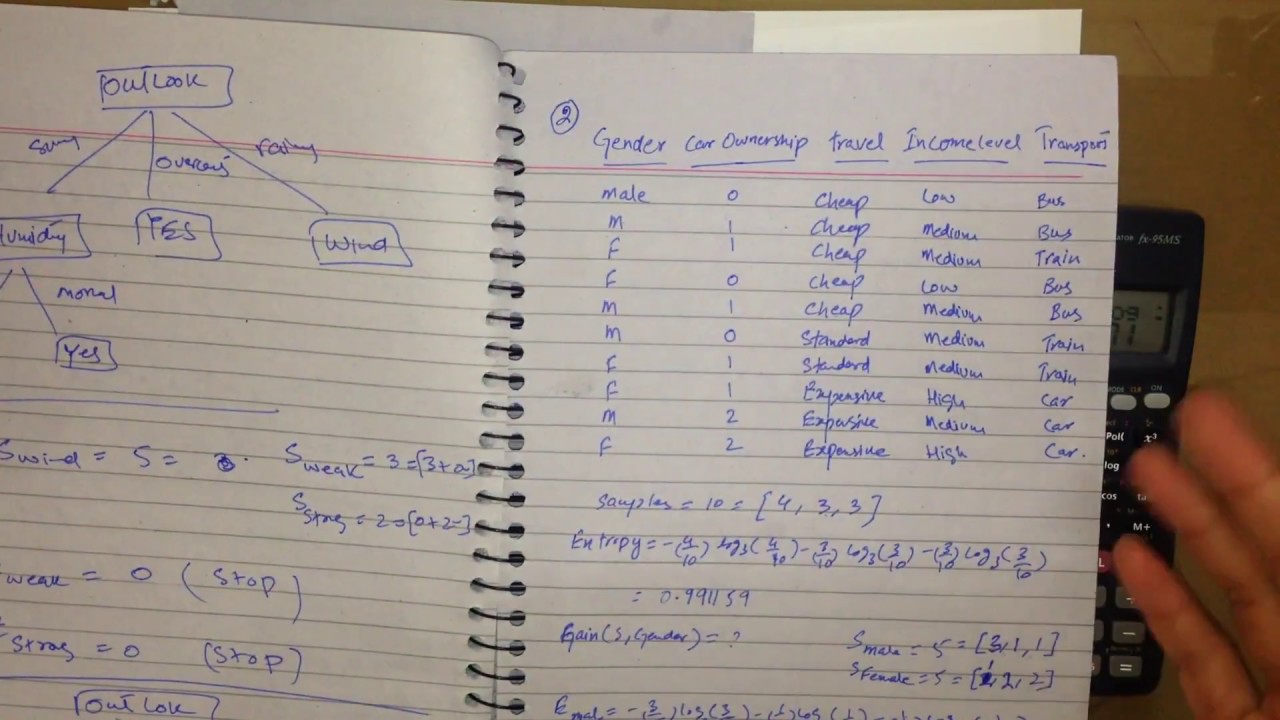 OutLook
sunny
Overcast
rainy
Humidity
YES
Wind
Yes
S wind = 5 =
S weak = 3 = [3+0]
S strog = 2 = [0+2-]
weak = 0 (Stop)
strog = 0 (Stop)
OutLook
②
Gender Car Ownership travel Income level Transport
male 0 Cheap Low Bus
M 1 Cheap Medium Bus
F 1 Cheap Medium Train
F 0 Cheap Low Bus
M 1 Cheap Medium Bus
M 0 Standard Medium Train
F 1 Standard Medium Train
F 1 Expensive High Car
M 2 Expensive Medium Car
F 2 Expensive High Car.
Samples = 10 = [4, 3, 3]
Entropy = -(4/10) log3(4/10) - (3/10) log3(3/10) - (3/10) log3(3/10)
= 0.991159
Gain(S, Gender) = ?
S male = 5 = [3, 1, 1]
S Female = 5 = [1, 2, 2]
fx-95MS
MODE CLR ON
Pol( x³
log
cos
M+
=